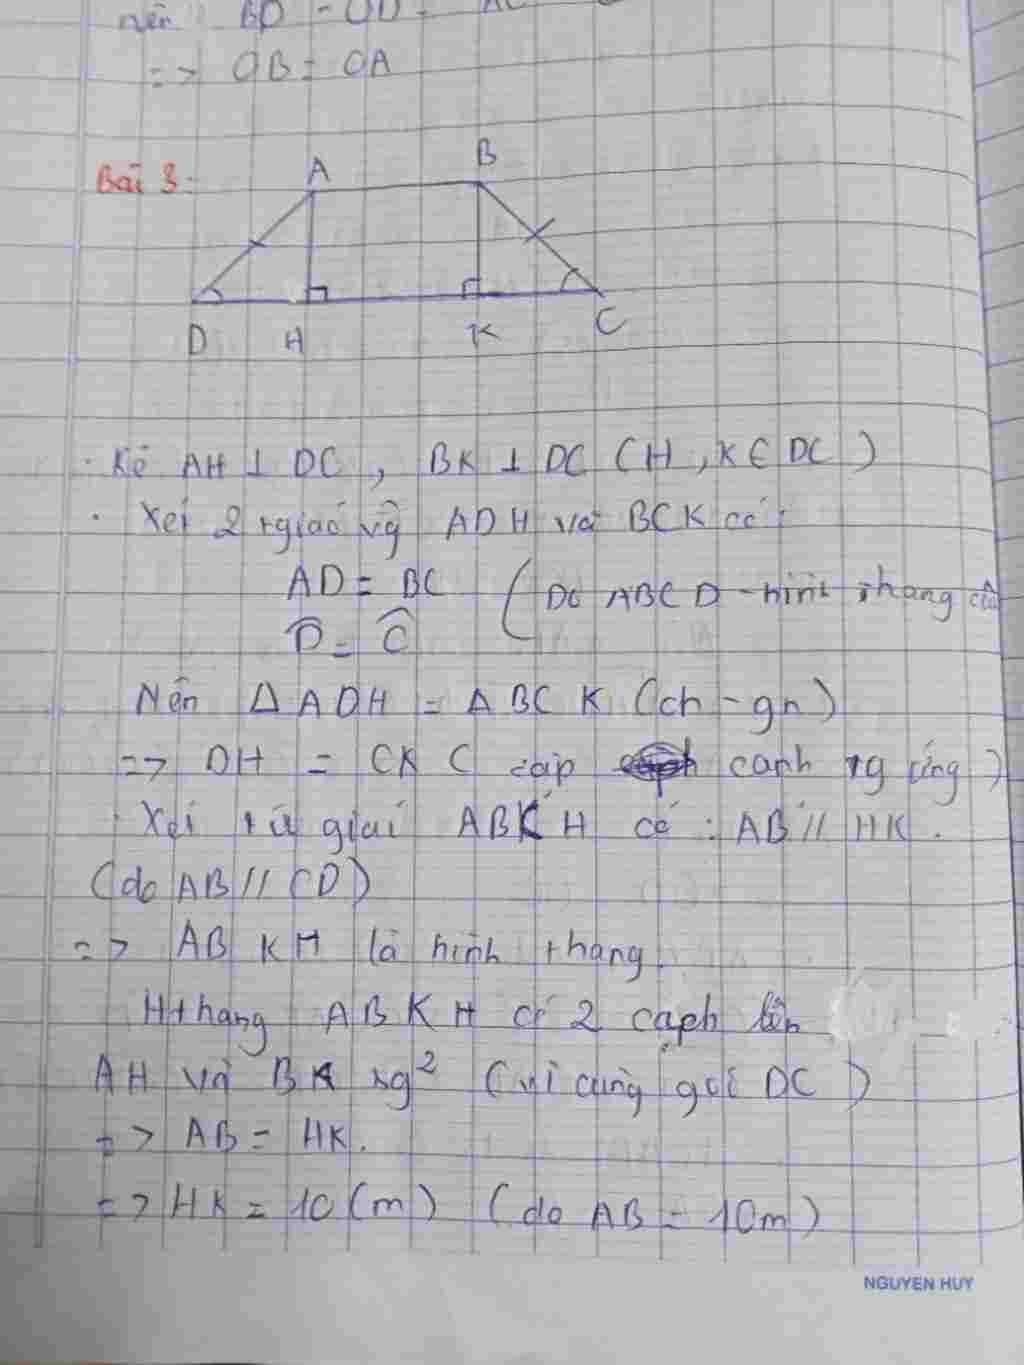 nên BD - OD =
=> OB = OA
Bài 3:
A B
D H K C
. Kẻ AH ⊥ DC , BK ⊥ DC ( H , K ∈ DC )
. Xét 2 tgiác vg ADH và BCK có :
AD = BC ( Do ABCD - hình thang cân
D̂ = Ĉ
Nên Δ ADH = Δ BCK (ch - gn)
=> DH = CK ( cặp cạnh tg ứng )
. Xét tứ giác ABKH có : AB // HK .
(do AB // CD)
=> ABKH là hình thang
Hthang ABKH có 2 cạnh bên
AH và BK sg² ( vì cùng góc DC )
=> AB = HK .
=> HK = 10 (m) ( do AB = 10m )
NGUYEN HUY